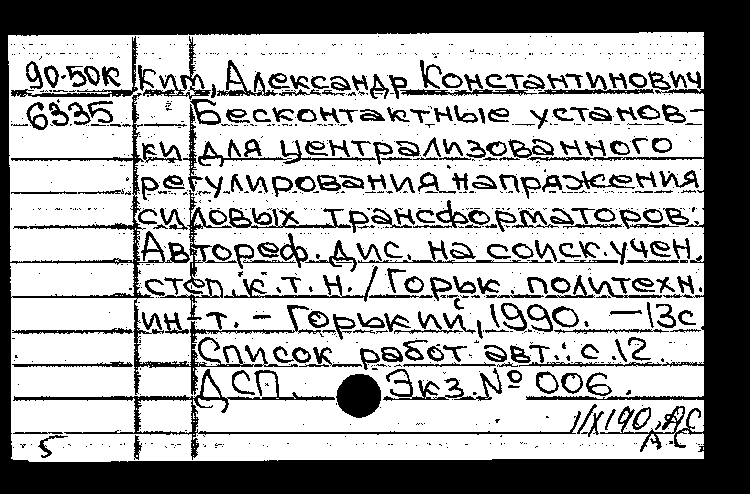 90-50К Ким, Александр Константинович
6335 Бесконтактные установ-
ки для централизованного
регулирования напряжения
силовых трансформаторов:
Автореф. дис. на соиск. учен.
степ. к. т. н. / Горьк. политехн.
ин-т. - Горький, 1990. - 13 с.
Список работ авт.: с. 12.
ДСП. Экз. № 006.
1/X190, АС
А.С
5